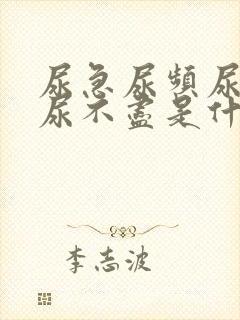 尿急尿頻尿
尿不盡是什
李志波